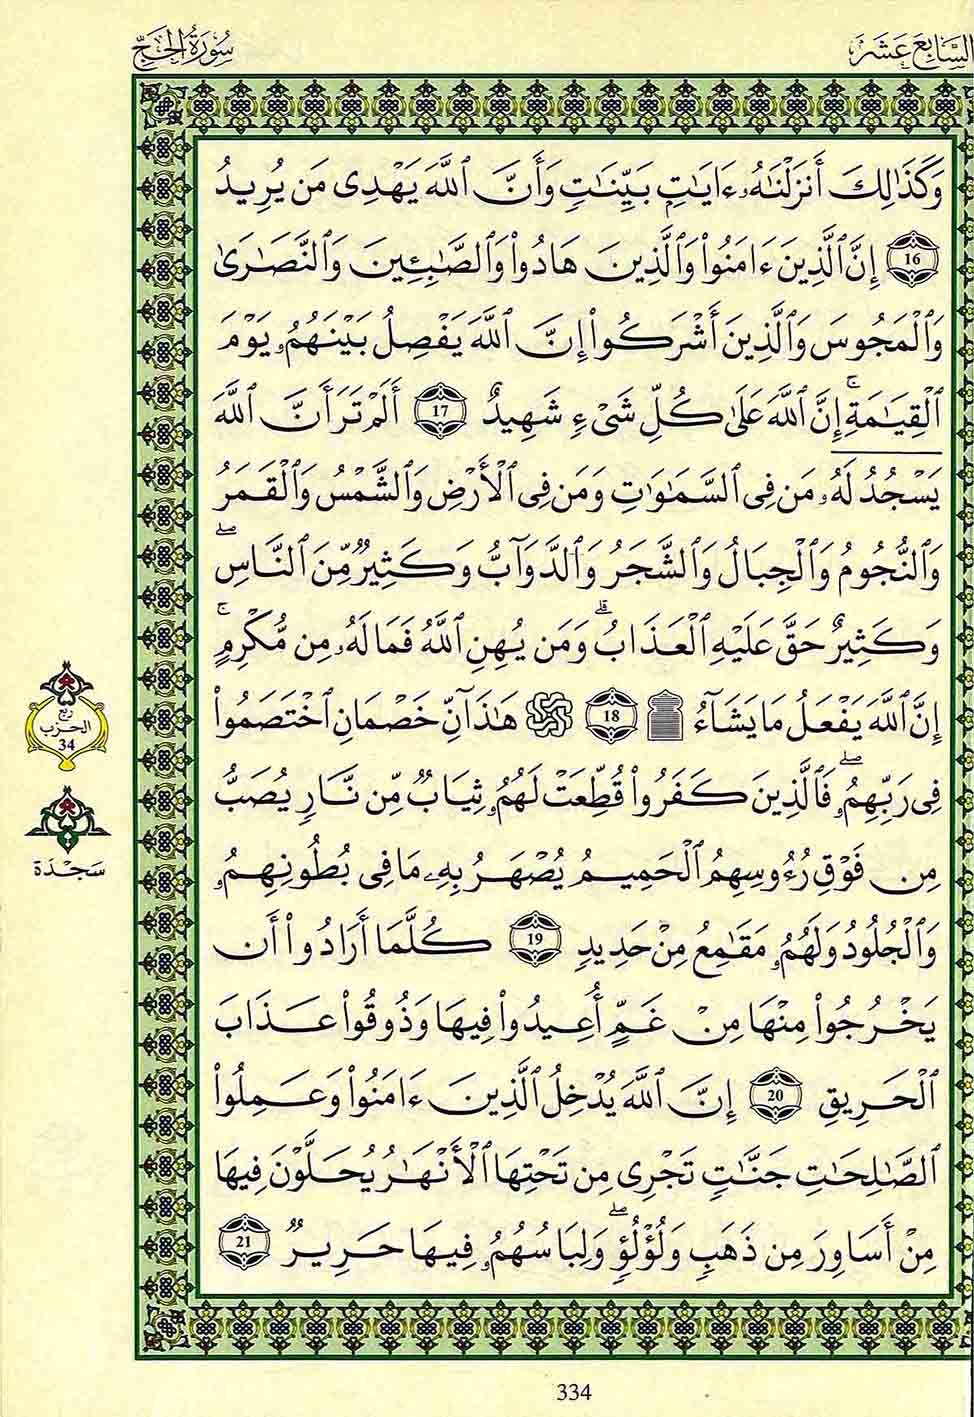 السَّابِعَ عَشَرَ
سُورَةُ الحَجِّ
وَكَذَٰلِكَ أَنزَلْنَٰهُۥ ءَايَٰتٍۭ بَيِّنَٰتٍ وَأَنَّ ٱللَّهَ يَهْدِى مَن يُرِيدُ
16 إِنَّ ٱلَّذِينَ ءَامَنُوا۟ وَٱلَّذِينَ هَادُوا۟ وَٱلصَّٰبِئِينَ وَٱلنَّصَٰرَىٰ
وَٱلْمَجُوسَ وَٱلَّذِينَ أَشْرَكُوا۟ إِنَّ ٱللَّهَ يَفْصِلُ بَيْنَهُمُۥ يَوْمَ
ٱلْقِيَٰمَةِ ۚ إِنَّ ٱللَّهَ عَلَىٰ كُلِّ شَىْءٍ شَهِيدٌ 17 أَلَمْ تَرَ أَنَّ ٱللَّهَ
يَسْجُدُ لَهُۥ مَن فِى ٱلسَّمَٰوَٰتِ وَمَن فِى ٱلْأَرْضِ وَٱلشَّمْسُ وَٱلْقَمَرُ
وَٱلنُّجُومُ وَٱلْجِبَالُ وَٱلشَّجَرُ وَٱلدَّوَآبُّ وَكَثِيرٌ مِّنَ ٱلنَّاسِ ۖ
وَكَثِيرٌ حَقَّ عَلَيْهِ ٱلْعَذَابُ ۗ وَمَن يُهِنِ ٱللَّهُ فَمَا لَهُۥ مِن مُّكْرِمٍ ۚ
إِنَّ ٱللَّهَ يَفْعَلُ مَا يَشَآءُ 18 هَٰذَآنِّ خَصْمَانِ ٱخْتَصَمُوا۟
فِى رَبِّهِمُۥ ۖ فَٱلَّذِينَ كَفَرُوا۟ قُطِّعَتْ لَهُمُۥ ثِيَابٌ مِّن نَّارٍ يُصَبُّ
مِن فَوْقِ رُءُوسِهِمُ ٱلْحَمِيمُ يُصْهَرُ بِهِۦ مَا فِى بُطُونِهِمُۥ
وَٱلْجُلُودُ وَلَهُمُۥ مَقَٰمِعُ مِنْ حَدِيدٍ 19 كُلَّمَا أَرَادُوا۟ أَن
يَخْرُجُوا۟ مِنْهَا مِنْ غَمٍّ أُعِيدُوا۟ فِيهَا وَذُوقُوا۟ عَذَابَ
ٱلْحَرِيقِ 20 إِنَّ ٱللَّهَ يُدْخِلُ ٱلَّذِينَ ءَامَنُوا۟ وَعَمِلُوا۟
ٱلصَّٰلِحَٰتِ جَنَّٰتٍ تَجْرِى مِن تَحْتِهَا ٱلْأَنْهَٰرُ يُحَلَّوْنَ فِيهَا
مِنْ أَسَاوِرَ مِن ذَهَبٍ وَلُؤْلُؤٍ ۖ وَلِبَاسُهُمُۥ فِيهَا حَرِيرٌ 21
ربع
الحزب
34
سَجْدَة
334